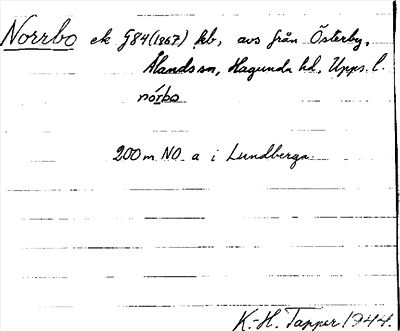 Norrbo ek G84(1867) kb, avs från Österby,
Ålands sn, Hagunda hd, Upps. l.
nórbo
200 m NO a i Lundberga.
K.-H. Tapper 1944.